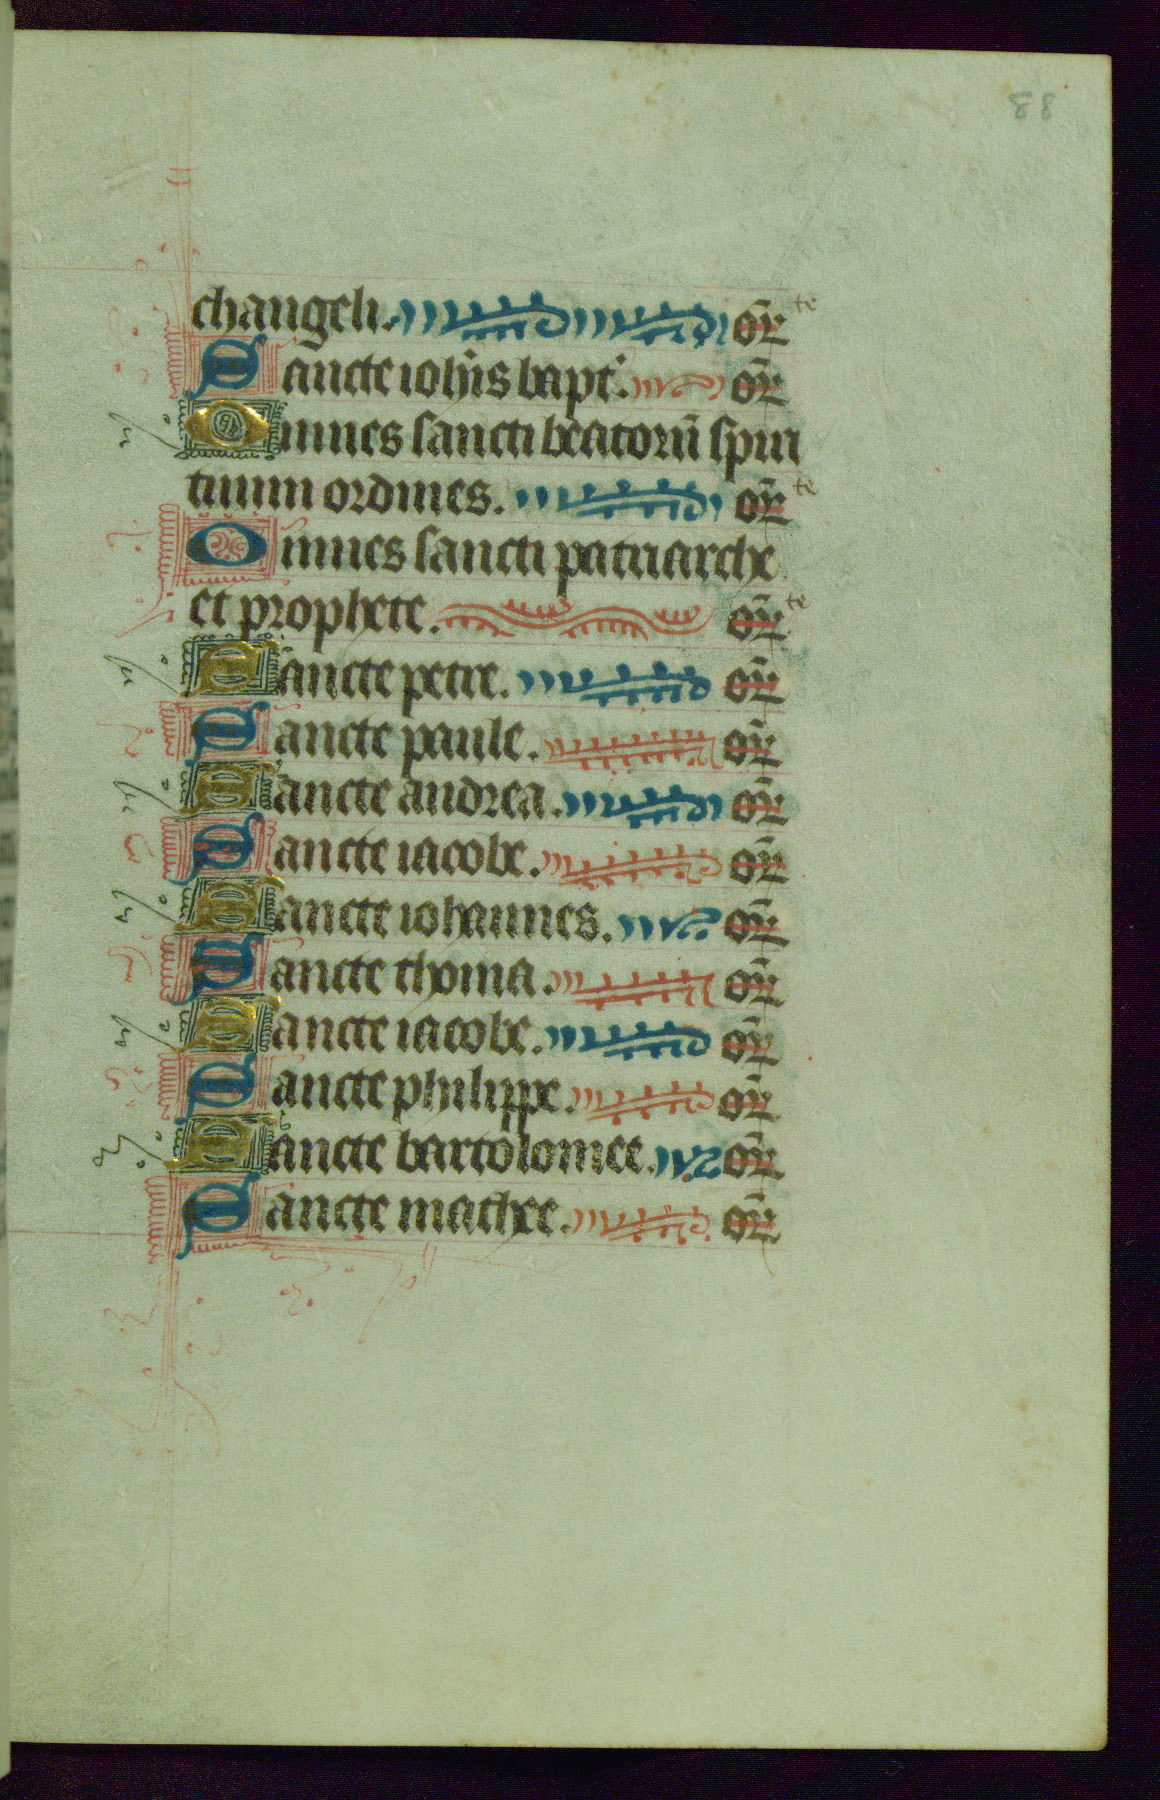 88
changeli. or̄ te
Sancte ioh̄is bapt'. or̄
Omnes sancti beatorū spiri
tuum ordines. or̄ te
Omnes sancti patriarche
et prophete. or̄ te
Sancte petre. or̄
Sancte paule. or̄
Sancte andrea. or̄
Sancte iacobe. or̄
Sancte iohannes. or̄
Sancte thoma. or̄
Sancte iacobe. or̄
Sancte philippe. or̄
Sancte bartolomee. or̄
Sancte mathee. or̄